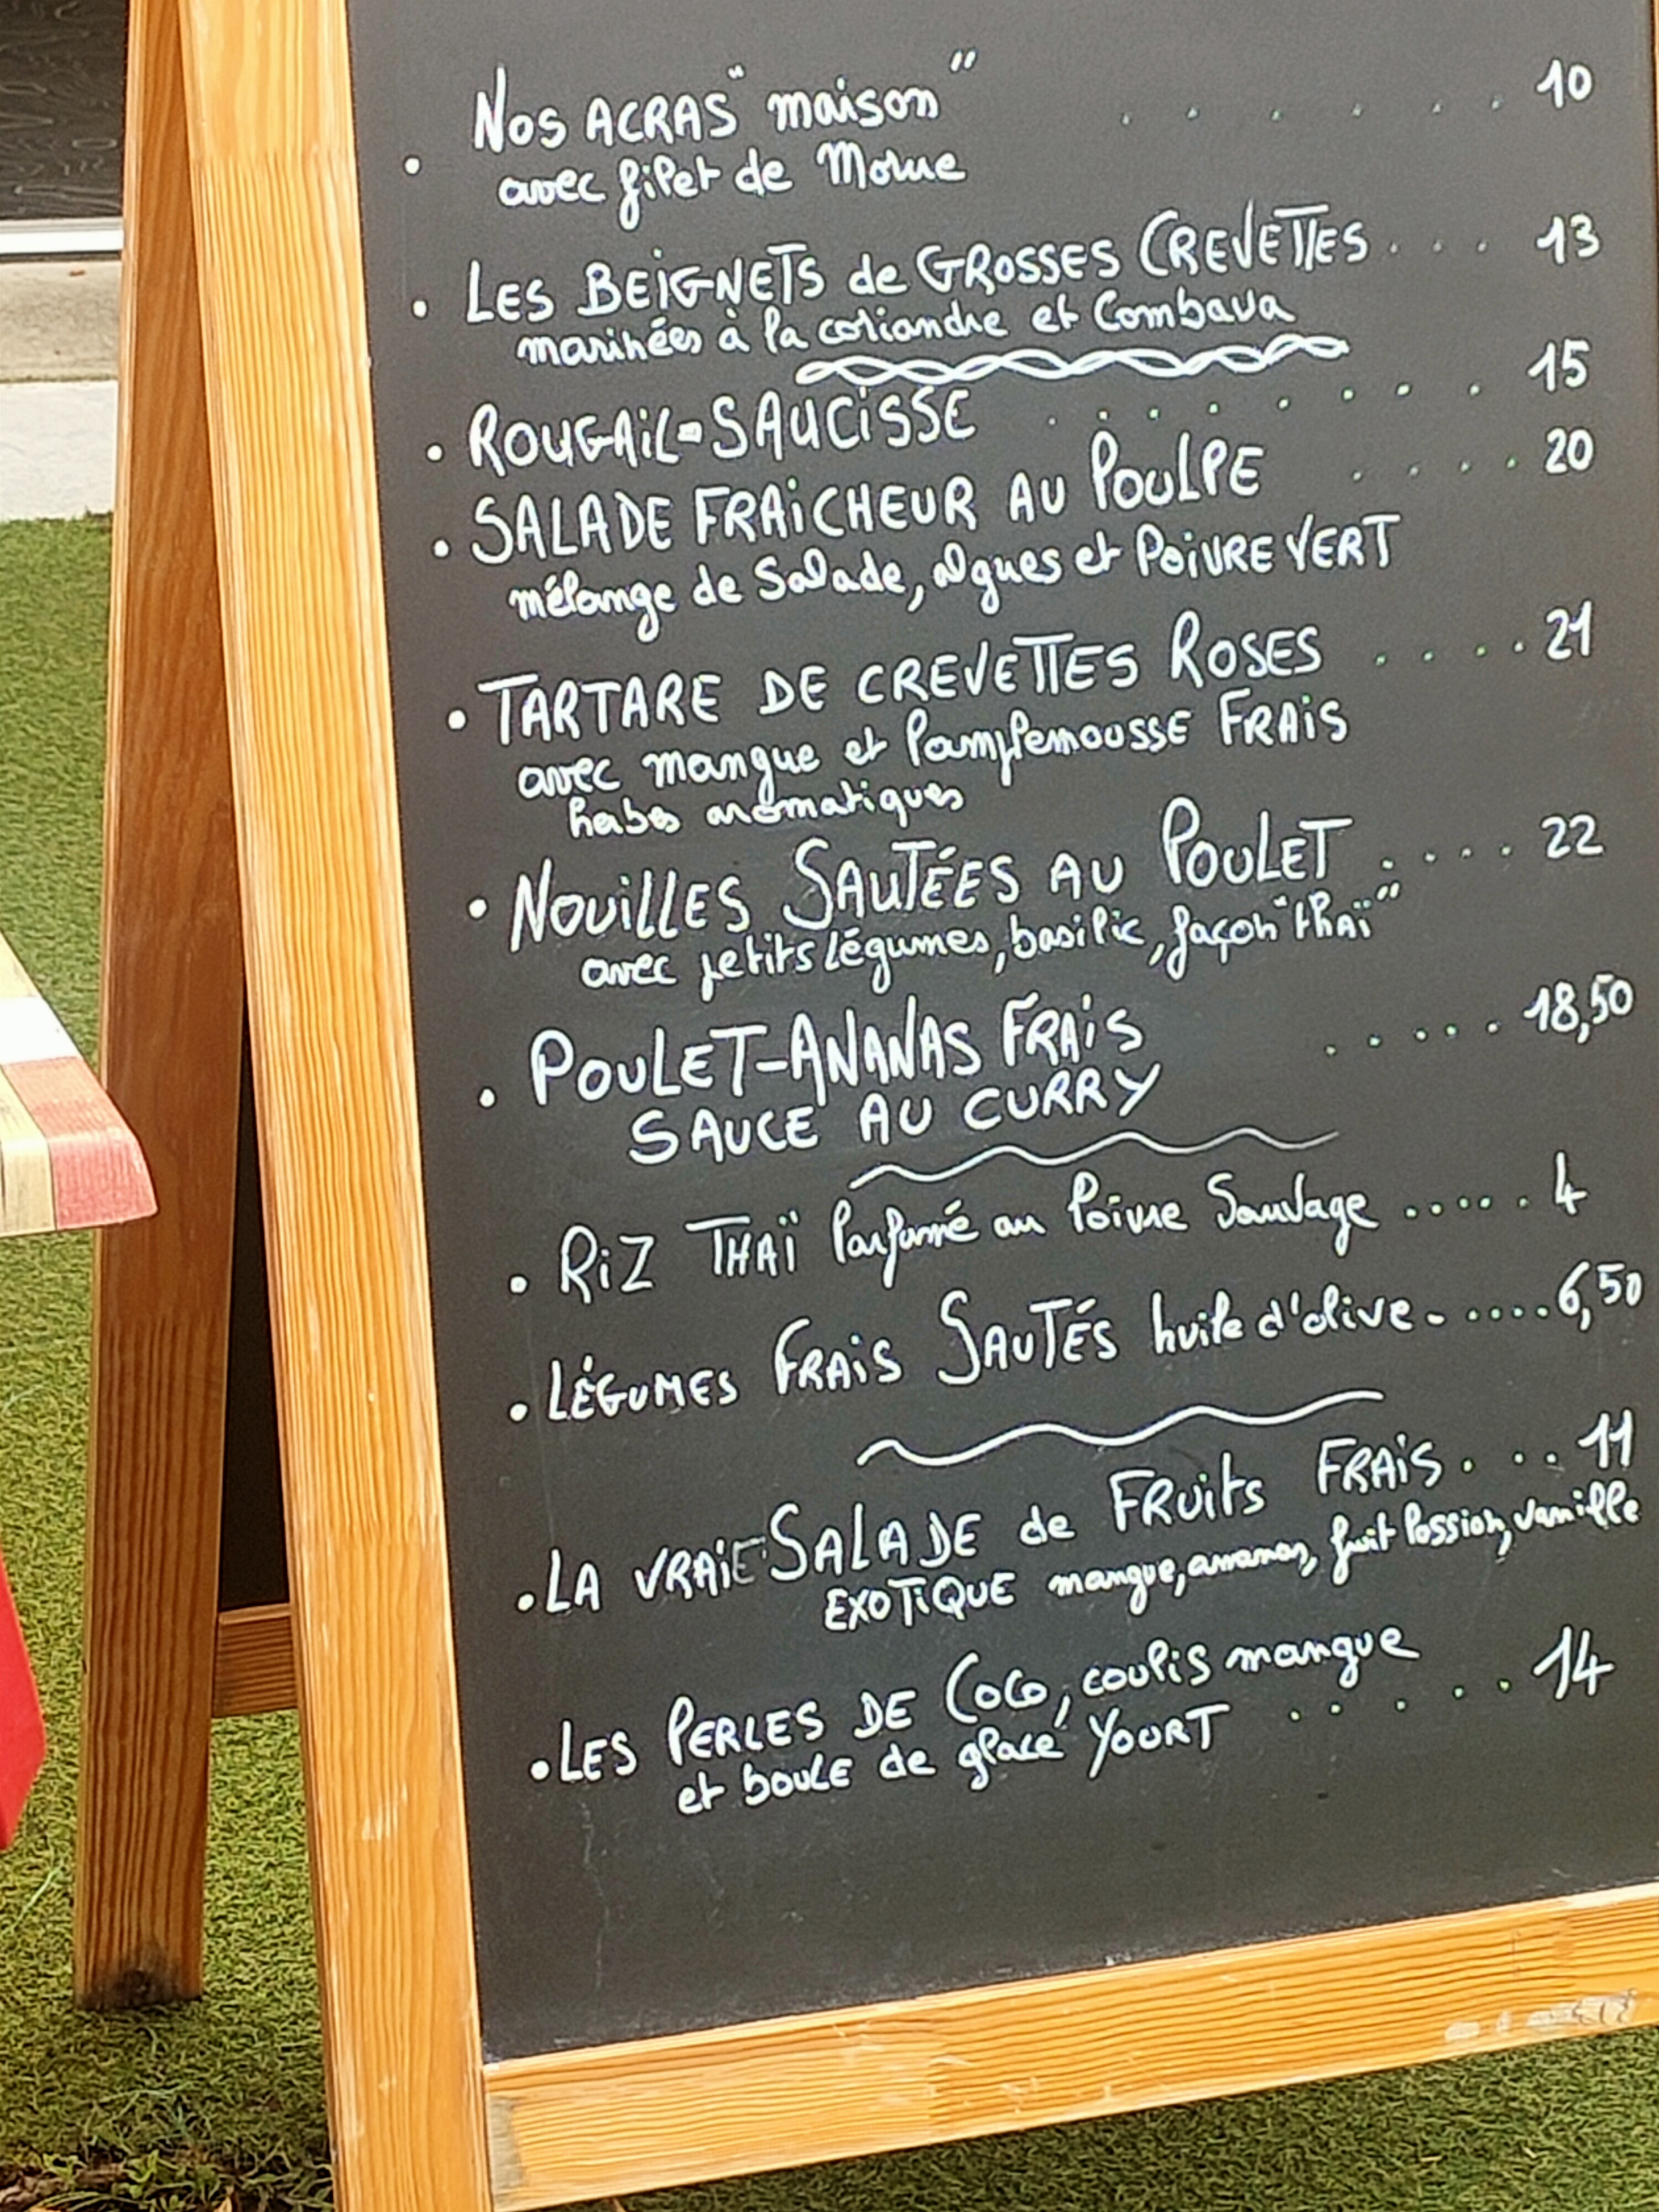 Nos ACRAS "maison" . . . . . . 10
avec filet de Morue
LES BEIGNETS de GROSSES CREVETTES . . . 13
marinées à la coriandre et Combava
ROUGAIL-SAUCISSE . . . . . . . . 15
SALADE FRAICHEUR AU POULPE . . . . 20
mélange de Salade, algues et POIVRE VERT
TARTARE DE CREVETTES ROSES . . . . 21
avec mangue et PamplemousSE FRAIS
herbes aromatiques
NOUILLES SAUTÉES AU POULET . . . . 22
avec petits légumes, basilic, façon "thaï"
POULET-ANANAS FRAIS . . . . . 18,50
SAUCE AU CURRY
RIZ THAÏ Parfumé au Poivre Sauvage ..... 4
LÉGUMES FRAIS SAUTÉS huile d'olive ..... 6,50
LA VRAIE SALADE de FRUITS FRAIS . . . 11
EXOTIQUE mangue, ananas, fruit Passion, vanille
LES PERLES DE COCO, coulis mangue
et boule de glace YOURT . . . . . 14